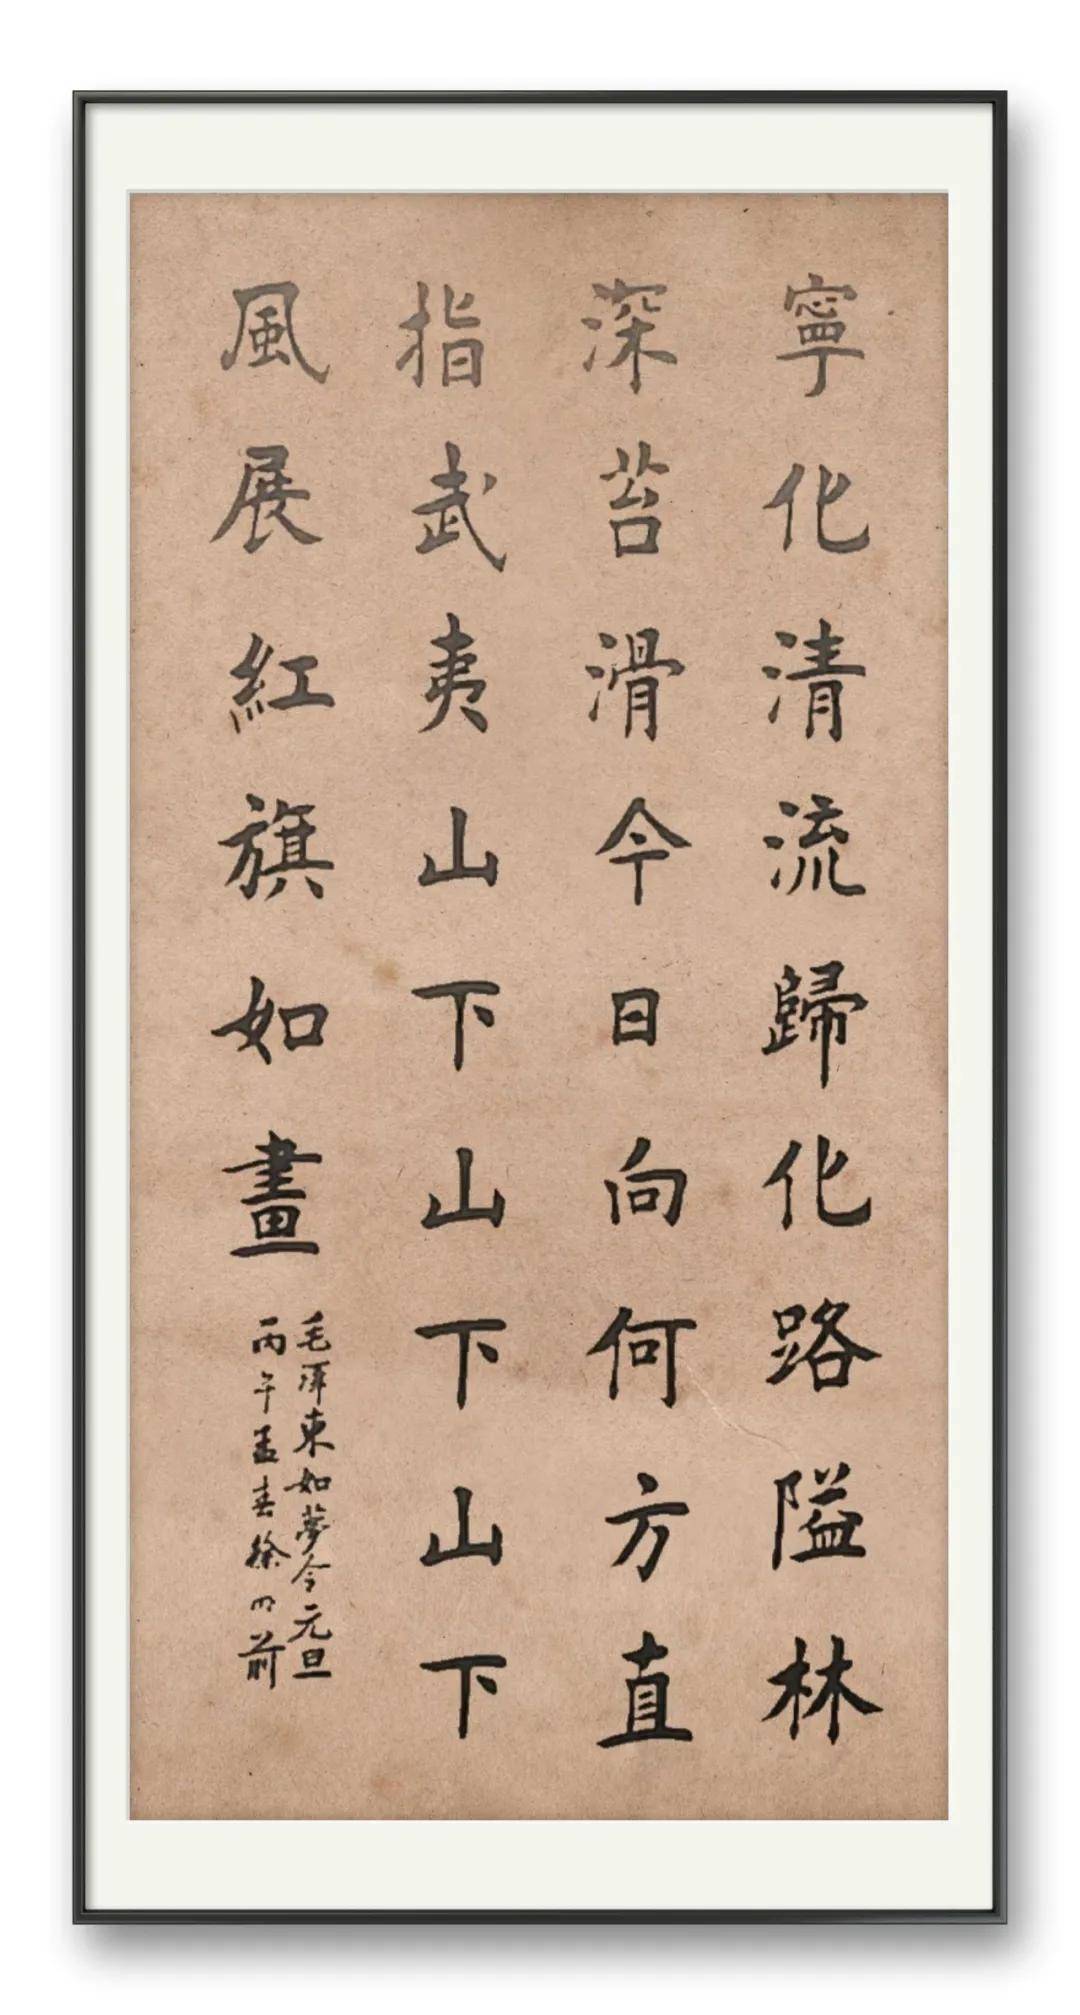 寧化清流歸化路隘林
深苔滑今日向何方直
指武夷山下山下山下
風展紅旗如畫
毛澤東如夢令元旦
丙午孟春徐明前